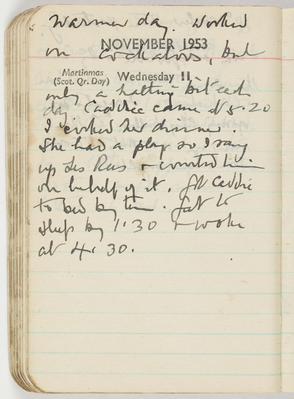 Warmer day. Worked
on Cockatoos, but
NOVEMBER 1953
Martinmas
(Scot. Qr. Day)
Wednesday 11
only a halting bit each
day. Caddie came at 5.20
I cooked her dinner.
She had a play so I rang
up Les Rees & 
on behalf of it. Got Caddie
to bed by ten. Got to
sleep by 1.30 & woke
at 4.30.